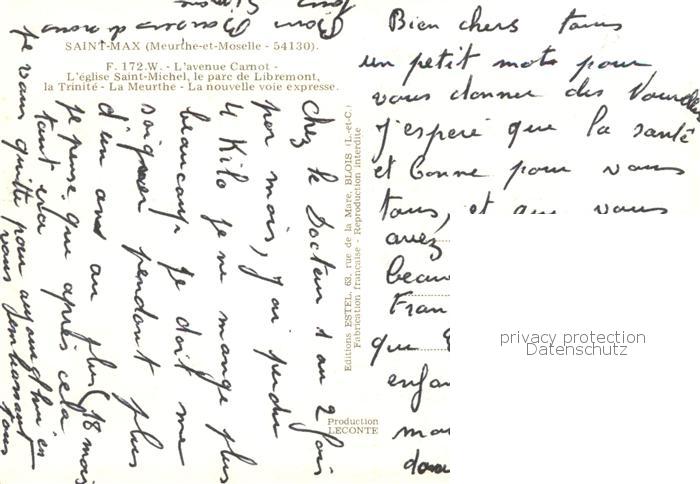 Bien chers tous
un petit mots pour
vous donner des Nouvelles
J'espere que la santé
et bonne pour vous
tous, et que vous
avez
beau
Fran
que
enfan
mon
donn
privacy protection
Datenschutz
chez le Docteur 1 ou 2 fois
par mois, j'ai perdu
4 Kilo je ne mange plus
beaucoup je doit me
soigner pendant plus
d'un ans au plus (18 mois
je pense que après cela
tout ira
je vous quitte pour aujourd'hui en
vous embrassant tous
Bons Baisers de nous
Simone
SAINT-MAX (Meurthe-et-Moselle - 54130).
F. 172.W. - L'avenue Carnot -
L'église Saint-Michel, le parc de Libremont,
la Trinité - La Meurthe - La nouvelle voie expresse.
Editions ESTEL, 63, rue de la Mare, BLOIS (L.-et-C.)
Fabrication française - Reproduction interdite
Production
LECONTE